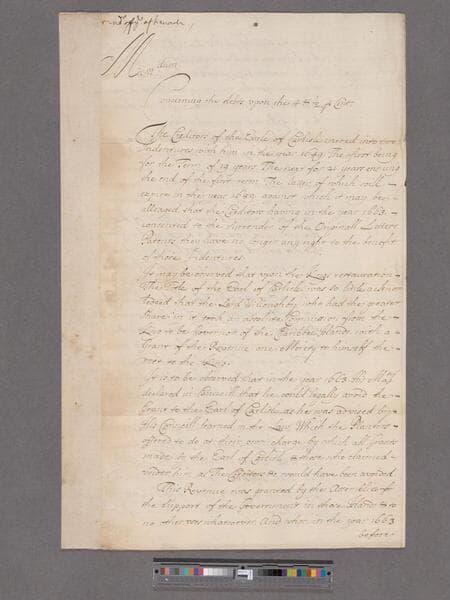 Memdum
Concerning the debts upon the 4 & ½ p Cent
The Creditors of the Earle of Carlisle entred into two
Indentures with him in the year 1649. The first being
for the Term of 19 years The next for 21 years ensuing
the end of the first term The later of which will
expire in the year 1690 against which it may bee
alleaged that the Creditors having in the year 1663
consented to the surrender of the Originall Letters
Patents they have no longer any right to the benefit
of those Indentures
It may be observed that upon the Kings restauration
The Title of the Earl of Carlisle was so little acknow
ledged that the Lord Willoughby who had the greatest
share in it took an absolute Commission from the
King to be Governor of the Caribbee Islands with a
Grant of the Revenue one Moiety to himself the
rest to the King.
It is to be observed that in the year 1663 the Maty
declared in Councill that he could legally avoid the
Grant to the Earl of Carlisle as he was advised by
his Councill learned in the Law Which the Planters
offered to do at their own charge by which all Grants
made by the Earl of Carlisle & those who claimed
under him as The Creditors &c would have been avoided
This Revenue was granted by the Assembly for
the Support of the Government in those Islands & to
no other uses whatsoever And when in the year 1663
before